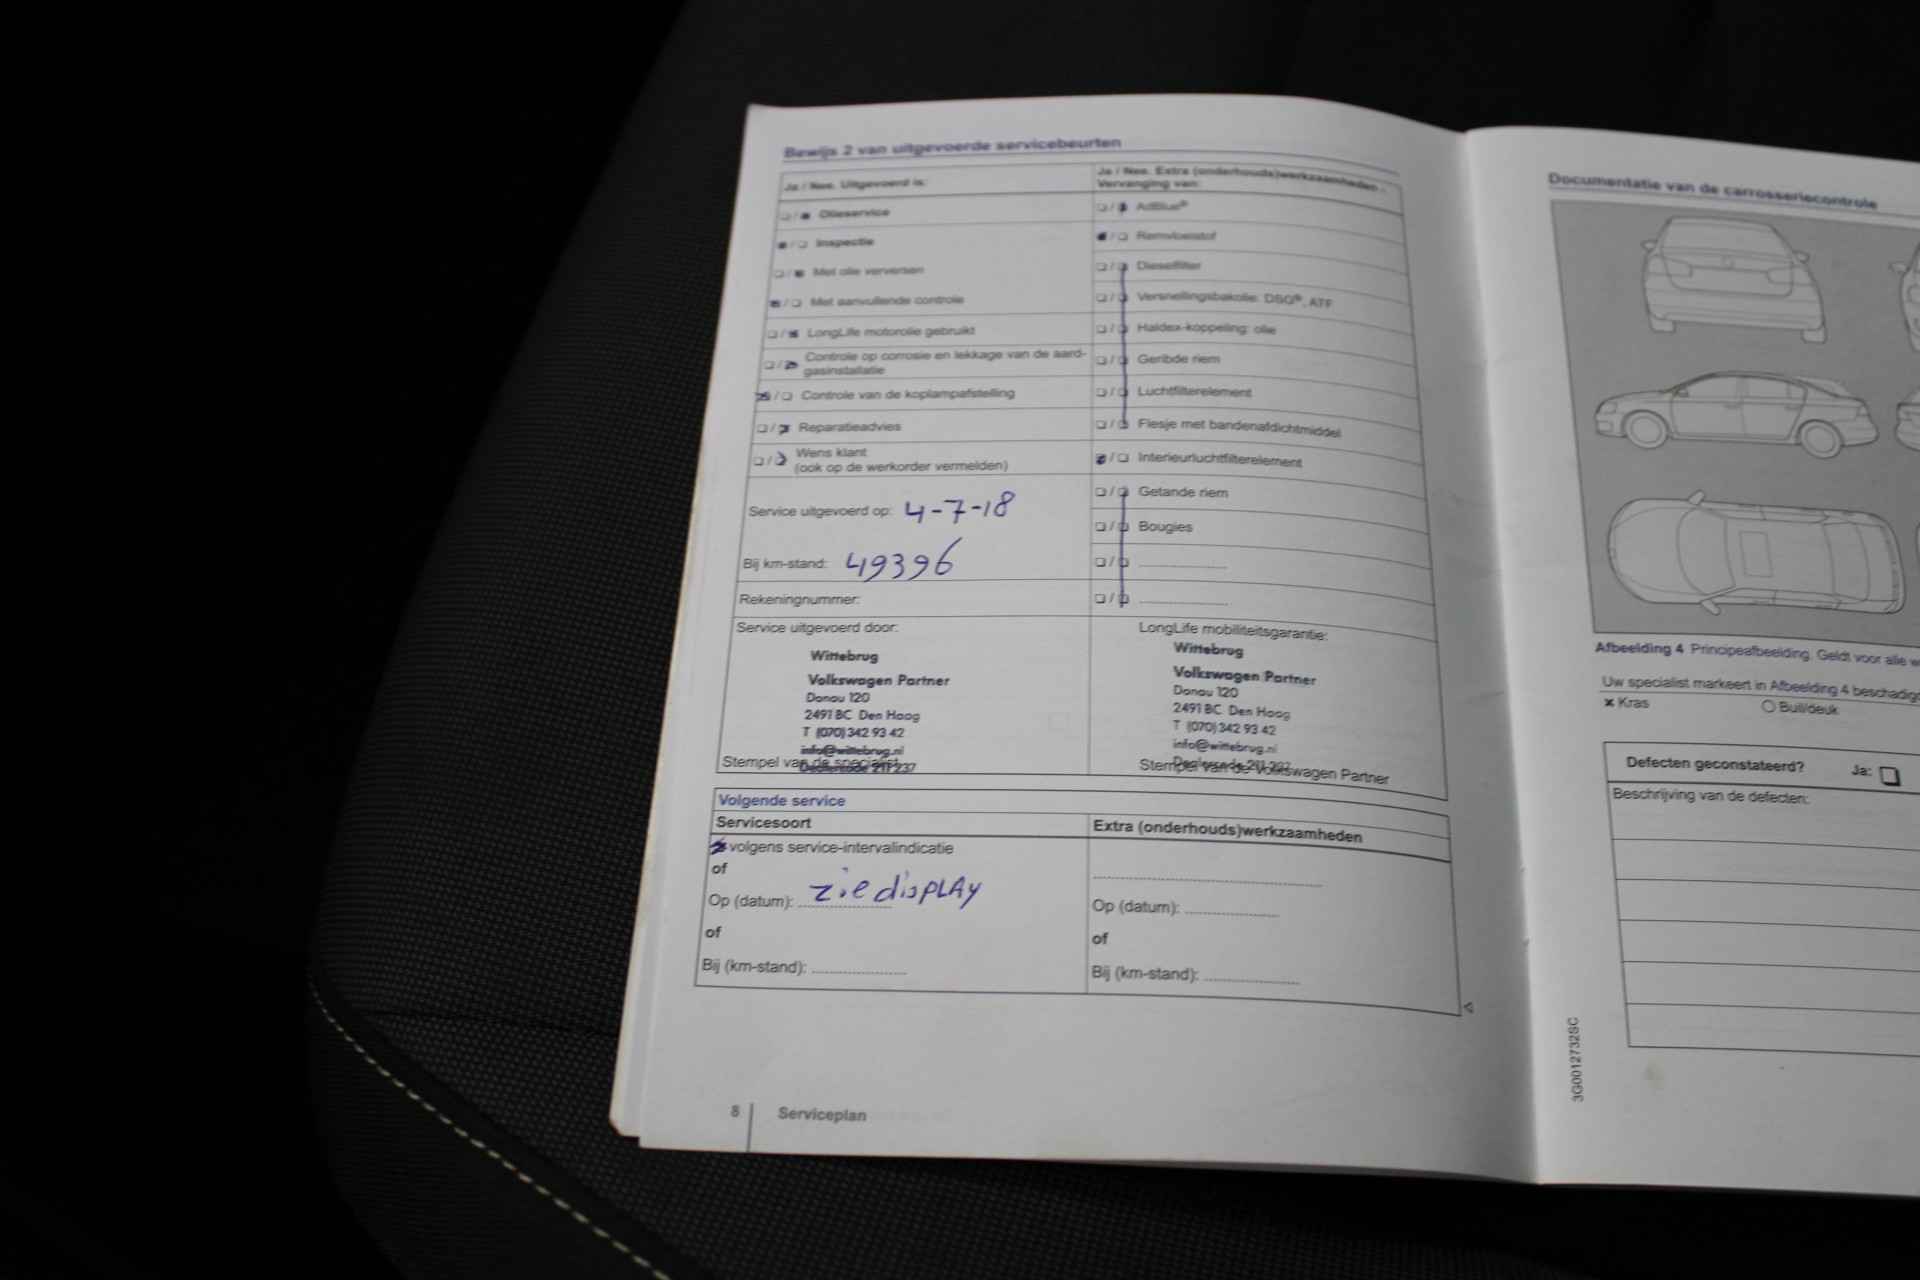 Bewijs 2 van uitgevoerde servicebeurten
Ja / Nee. Uitgevoerd is:
Olieservice
Inspectie
Met olie verversen
Met aanvullende controle
LongLife motorolie gebruikt
Controle op corrosie en lekkage van de aard-
gasinstallatie
Controle van de koplampafstelling
Reparatieadvies
Wens klant
(ook op de werkorder vermelden)
Service uitgevoerd op: 4-7-18
Bij km-stand: 49396
Rekeningnummer:
Service uitgevoerd door:
Wittebrug
Volkswagen Partner
Donau 120
2491 BC Den Haag
T (070) 342 93 42
info@wittebrug.nl
Dealercode 211 237
Stempel van de specialist
Ja / Nee. Extra (onderhouds)werkzaamheden -
Vervanging van:
AdBlue®
Remvloeistof
Dieselfilter
Versnellingsbakolie: DSG®, ATF
Haldex-koppeling: olie
Geribde riem
Luchtfilterelement
Flesje met bandenafdichtmiddel
Interieurluchtfilterelement
Getande riem
Bougies
LongLife mobiliteitsgarantie:
Wittebrug
Volkswagen Partner
Donau 120
2491 BC Den Haag
T (070) 342 93 42
info@wittebrug.nl
Stempel van de Volkswagen Partner
Volgende service
Servicesoort
volgens service-intervalindicatie
of
Op (datum): zie display
of
Bij (km-stand):
Extra (onderhouds)werkzaamheden
Op (datum):
of
Bij (km-stand):
8 Serviceplan
Documentatie van de carrosseriecontrole
Afbeelding 4 Principeafbeelding. Geldt voor alle
Uw specialist markeert in Afbeelding 4
x Kras Buil/deuk
Defecten geconstateerd? Ja:
Beschrijving van de defecten:
3G0012732SC